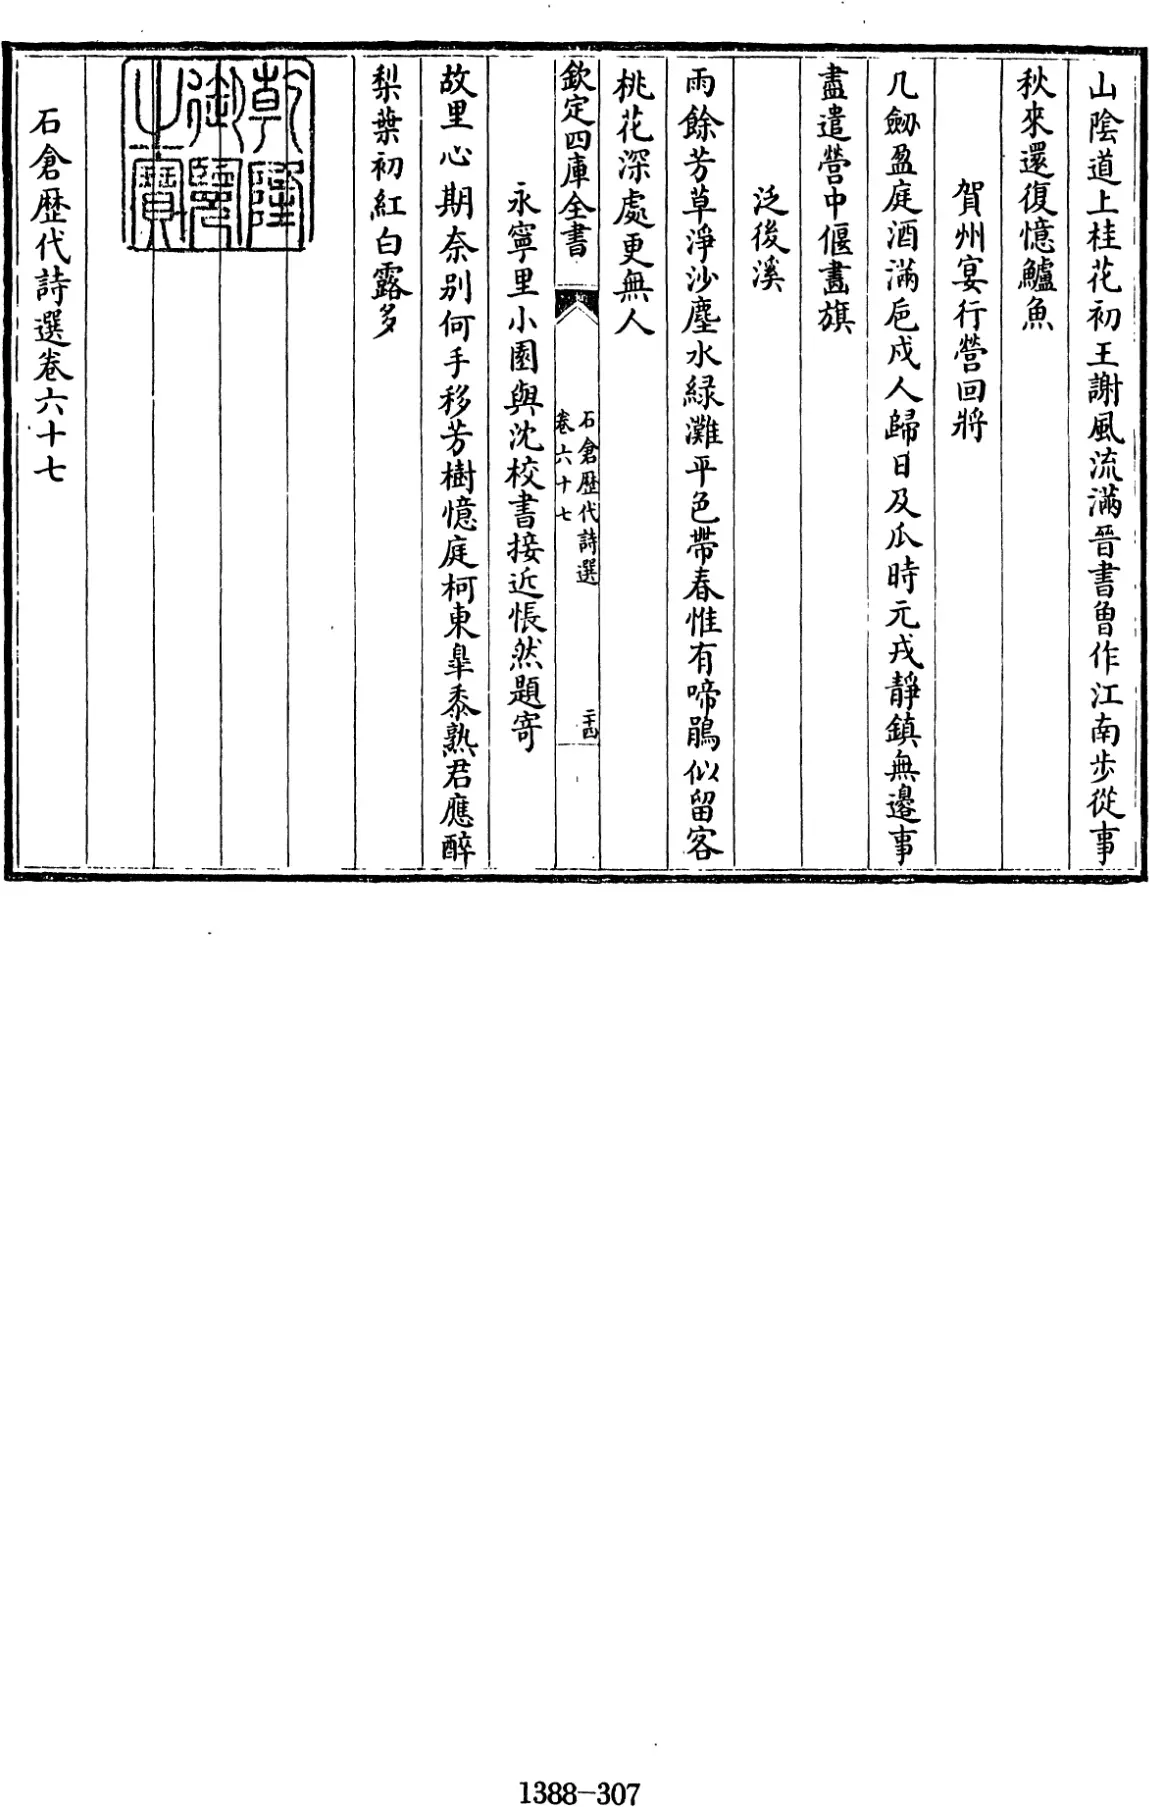 山陰道上桂花初王謝風流滿晉書曾作江南步從事
秋來還復憶鱸魚
賀州宴行營回將
几劒盈庭酒滿巵戍人歸日及瓜時元戎靜鎮無邊事
盡遣營中偃畫旗
泛後溪
雨餘芳草淨沙塵水緑灘平色帶春惟有啼鵑似留客
桃花深處更無人
欽定四庫全書
石倉歴代詩選
卷六十七
二十四
永寧里小園與沈校書接近悵然題寄
故里心期奈别何手移芳樹憶庭柯東臯黍熟君應醉
梨葉初紅白露多
乾隆御覽之寶
石倉歴代詩選卷六十七
1388-307